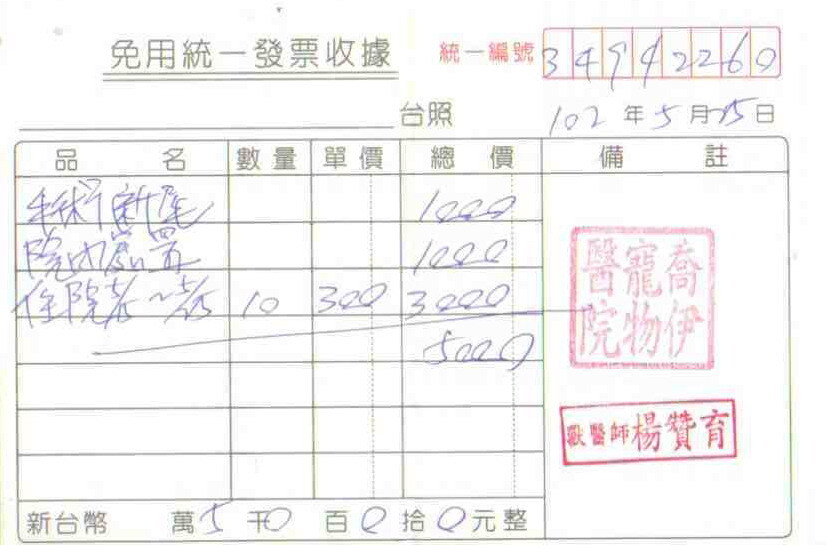 免用統一發票收據
統一編號 34942260
台照 102年5月25日
品名 數量 單價 總價 備註
手術斷尾 1000
院內處置 1000
住院 5/15~5/25 10 300 3000
5000
喬伊
寵物
醫院
獸醫師楊贊育
新台幣 萬5千0百0拾0元整